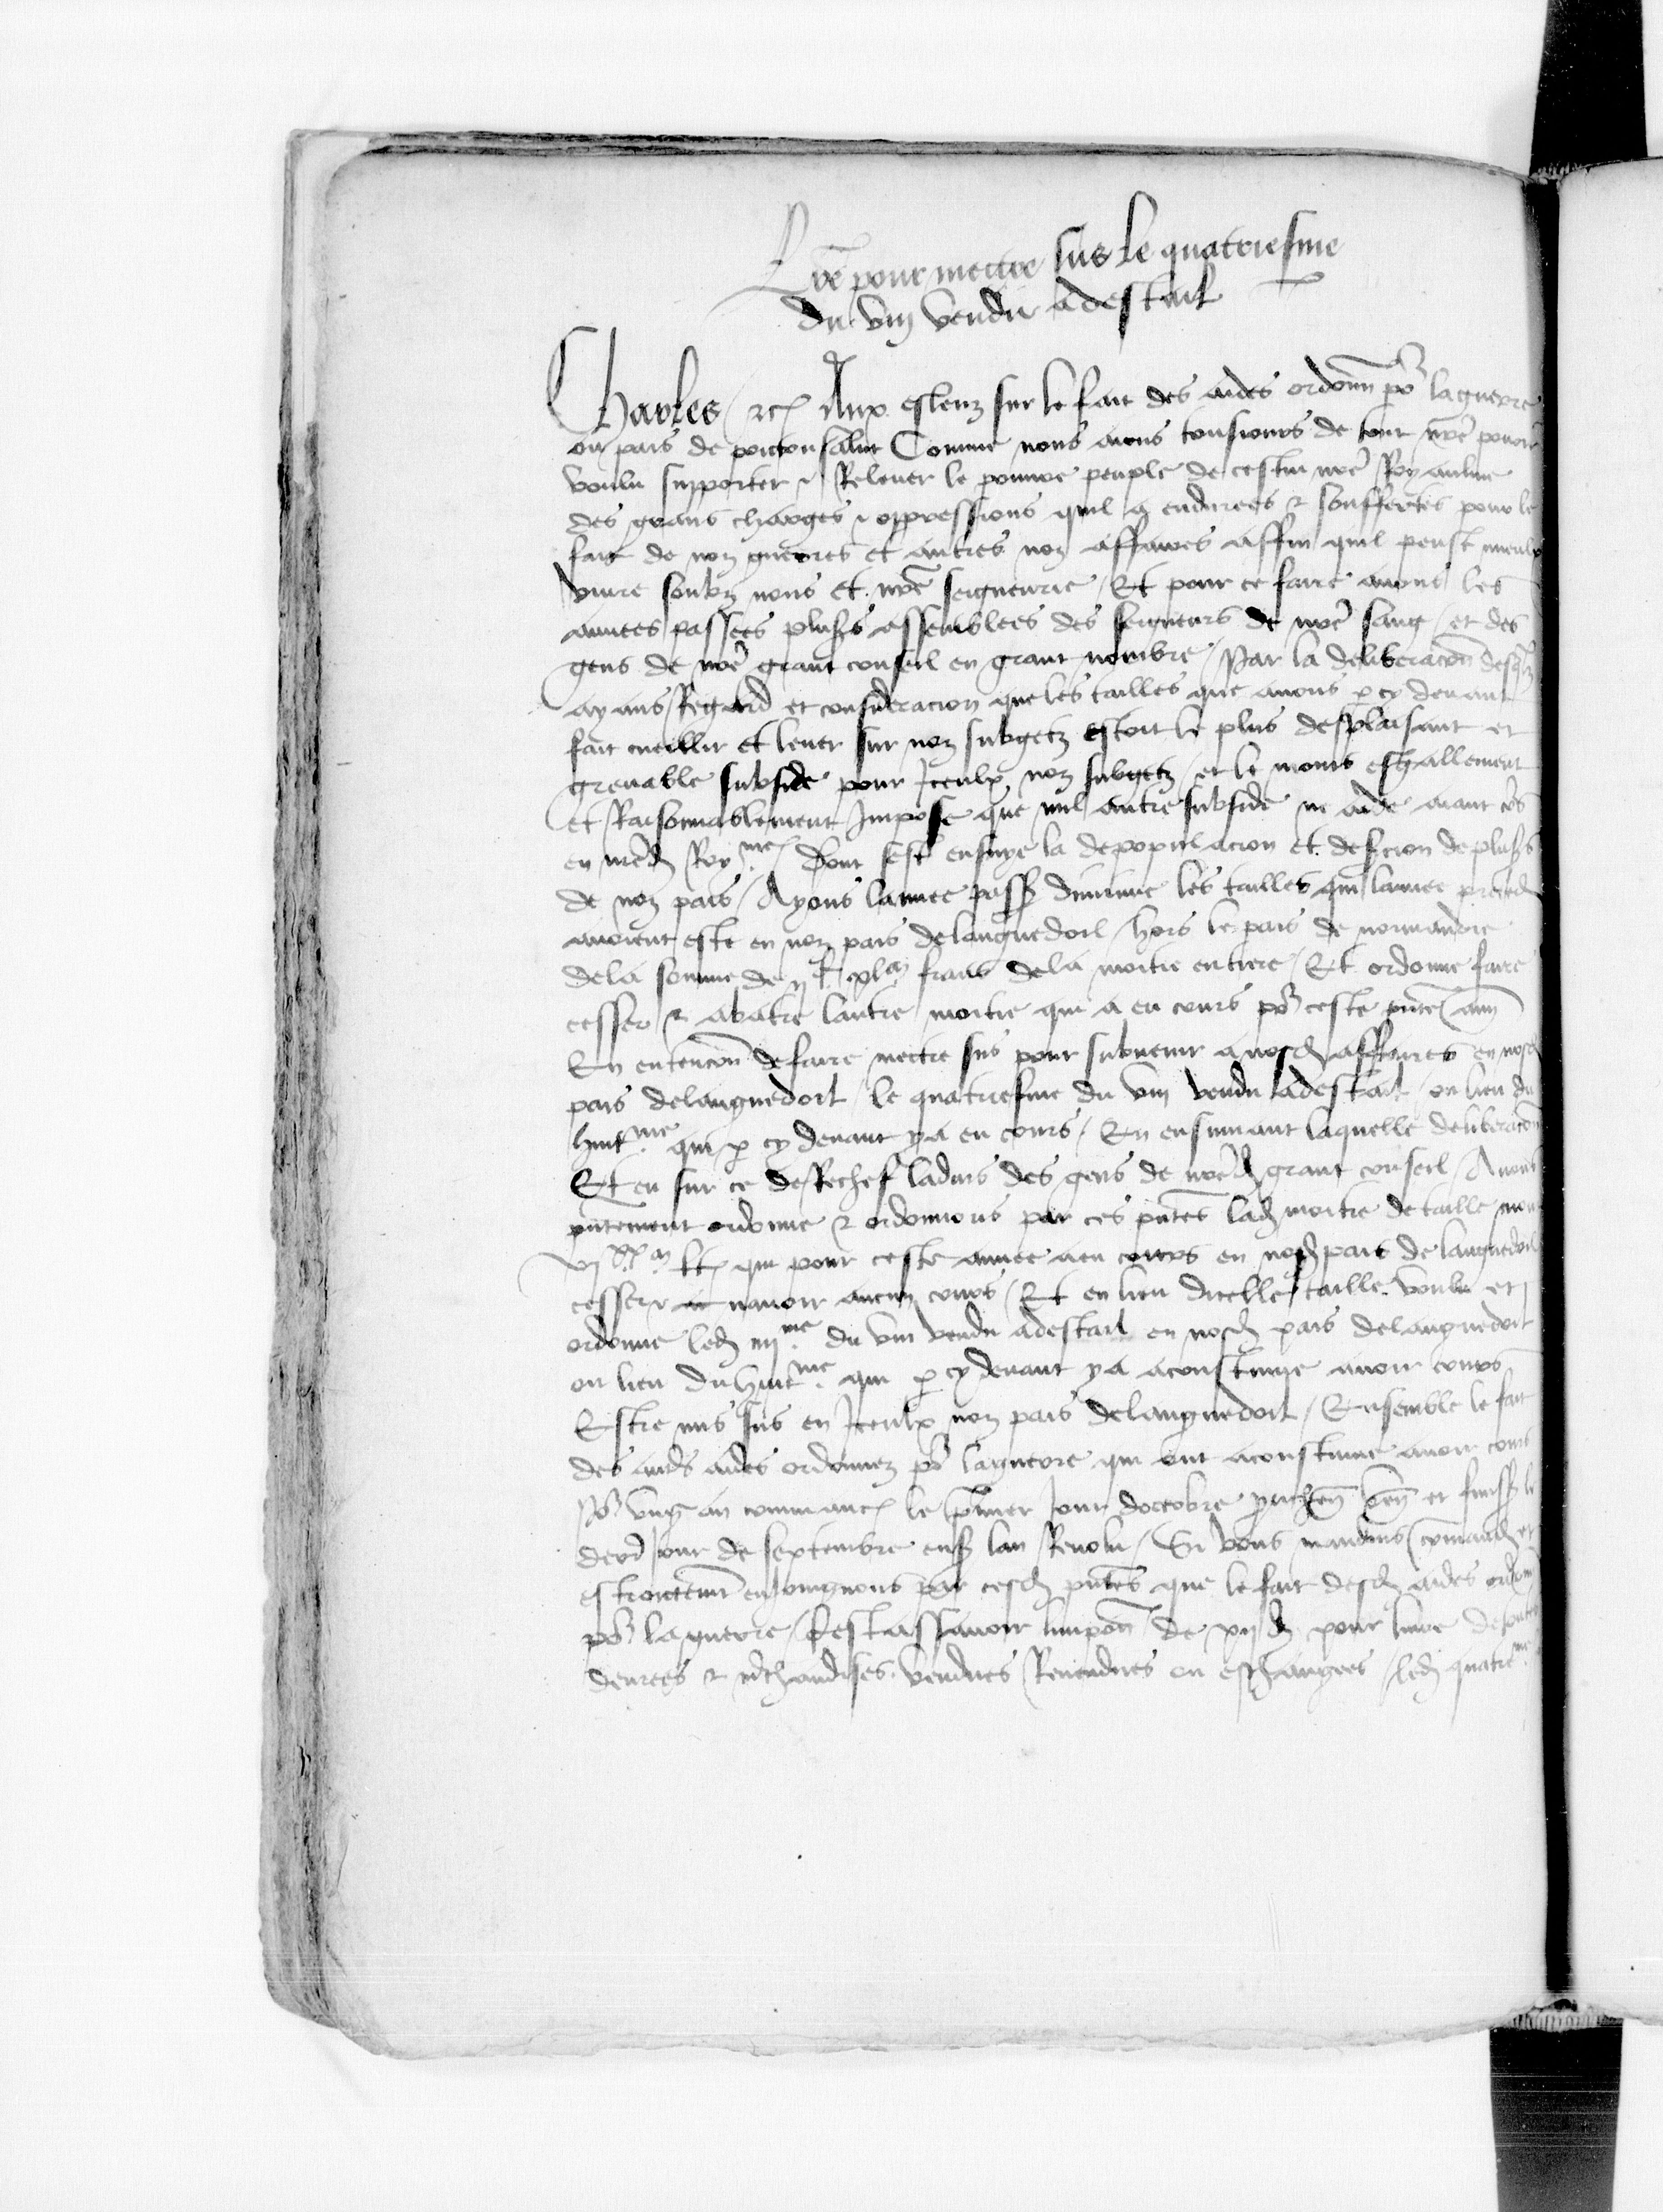 Lre pour mettre sus le quatriesme
du vin vendu a destail
Charles etc Aux esleuz sur le fait des aides ordonn po' la guerre
ou pais de poictou salut Comme nous aions tousiours de tout nre povoir
voulu supporter & Relever le pouvre peuple de cestui nre Royaulme
des grans charges & oppressions quil a endurees & souffertes pour le
fait de noz guerres et autres noz affaires affin quil peust mieulx
vivre soubz nous et nre seigneurie / Et pour ce faire avons les
annees passees plus's assemblees des seigneurs de nre sang / et des
gens de nre grant conseil en grant nombre / Par la deliberacon desqlz
ayans Regard et consideracion que les tailles que avons p cy devant
fait cueillir et lever sur noz subgetz estoit le plus desplaisant et
grevable subside pour Iceulx noz subgetz / et le moins eshallement
et Raisonnablement Impose que nul autre subside ne aide aiant cours
en nred Roy.me Dont sest ensuye la depopulacion et des'cion de plus's
de noz pais / Ayons lannee pass diminue les tailles qui lannee preced
avoient este en noz pais de languedoil / hors le pais de normandie
de la somme de ij c xl m frans de la moitie entiere / Et ordonne faire
cesser & abatre lautre moitie qui a eu cours po' ceste pnte ann
En entencon de faire mettre sus pour subvenir a nosd affaires en nosd
pais de languedoil / le quatriesme du vin vendu a destail / ou lieu du
huit.me qui p cy devant y a eu cours / En ensuivant laquelle deliberacon
Et eu sur ce de Rechef ladvis des gens de nred grant conseil / Avons
pntement ordonne & ordonnons par ces pntes lad moitie de taille mon
vj xx m l t qui pour ceste annee a eu cours en nosd pais de languedoil
cesser & navoir aucun cours / Et en lieu dicelle taille voulu et
ordonne led iiij.me du vin vendu a destail en nosd pais de languedoil
ou lieu du huit.me qui p cy devant y a acoustume avoir cours
Estre mis sus en Iceulx noz pais de languedoil / Ensemble le fait
des aut's aides ordonnez po' la guerre qui ont acoustume avoir cours
Po' ung an commanc le p'mier Jour doctobre prchen ven et finiss le
derd jour de septembre ens lan Revolu / Si vous mandons command et
estroictemt enjoingnons par cesd pntes que le fait desd aides ordonn
po' la guerre / Cest assavoir limpon de xij d pour livre de toutes
denrees & m'chandises vendues Revendues ou eschangees / led quatr.me